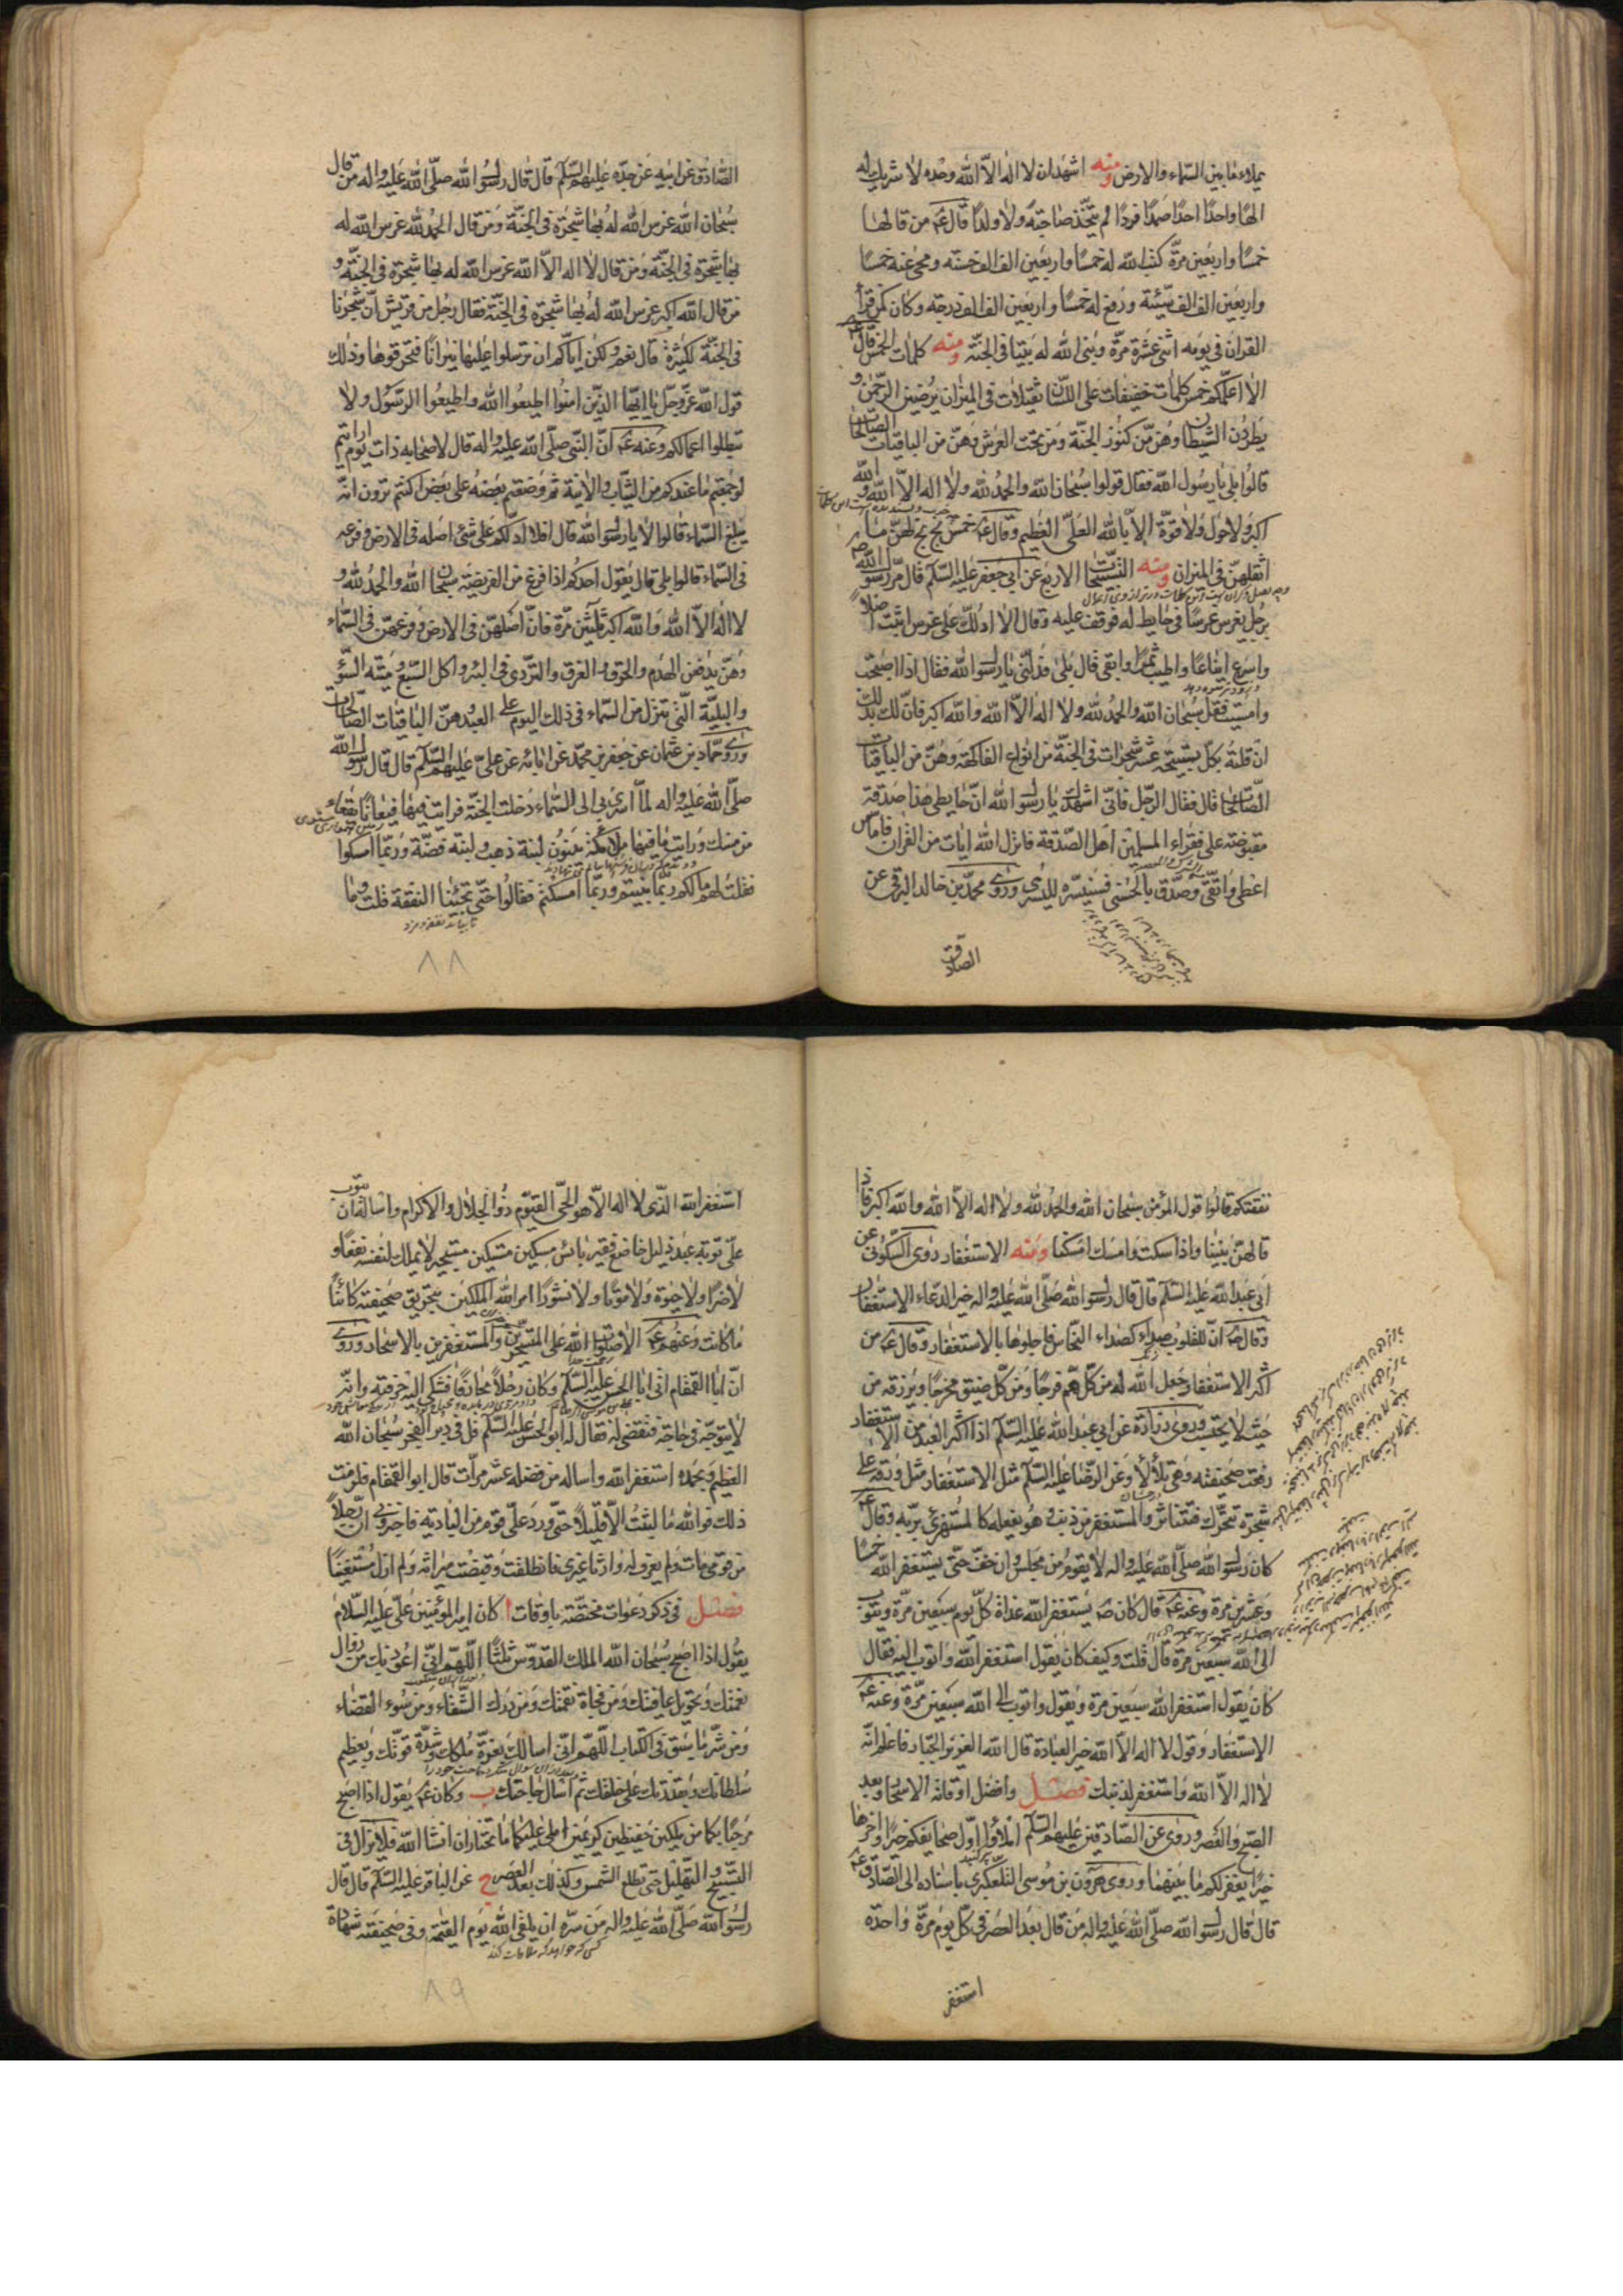 يملاء ما بين السماء والارض ومنه اشهد ان لا اله الا الله وحده لا شريك له
الها واحدا احدا صمدا فردا لم يتخذ صاحبة ولا ولدا قال ع من قالها
خمسا واربعين مرة كتب الله له خمسا واربعين الف الف حسنة ومحى عنه خمسا
واربعين الف الف سيئة ورفع له خمسا واربعين الف الف درجة وكان كمن قرأ
القران في يومه اثنى عشرة مرة وبنى الله له بيتا في الجنة ومنه كلمات الخمس قال ع
الا اعلمكم خمس كلمات خفيفات على اللسان ثقيلات في الميزان يرضين الرحمن و
يطردن الشيطان وهن من كنوز الجنة ومن تحت العرش وهن من الباقيات الصالحات
قالوا بلى يا رسول الله فقال قولوا سبحان الله والحمد لله ولا اله الا الله والله
اكبر ولا حول ولا قوة الا بالله العلى العظيم وقال ع خمس بخ بخ لهن ما
اثقلهن في الميزان ومنه التسبيحات الاربع عن ابي جعفر عليه السلم قال مر رسول الله ص
برجل يغرس غرسا في حايط له فوقف عليه وقال الا ادلك على غرس اثبت اصلا
واسرع ايناعا واطيب ثمرا وابقى قال بلى فدلني يا رسول الله فقال اذا اصبحت
وامسيت فقل سبحان الله والحمد لله ولا اله الا الله والله اكبر فان لك بذلك
ان قلته بكل تسبيحة عشر شجرات في الجنة من انواع الفاكهة وهن من الباقيات
الصالحات قال فقال الرجل فاني اشهدك يا رسول الله ان حايطى هذا صدقة
مقبوضة على فقراء المسلمين اهل الصدقة فانزل الله ايات من القران فاما من
اعطى واتقى وصدق بالحسنى فسنيسره لليسرى وروى محمد بن خالد البرقى عن
الصادق
الصادق عن ابيه عن جده عليهم السلم قال قال رسول الله صلى الله عليه واله من قال
سبحان الله غرس الله له بها شجرة في الجنة ومن قال الحمد لله غرس الله له
بها شجرة في الجنة ومن قال لا اله الا الله غرس الله له بها شجرة في الجنة و
من قال الله اكبر غرس الله له بها شجرة في الجنة فقال رجل من قريش ان شجرنا
في الجنة لكثيرة قال نعم ولكن اياكم ان ترسلوا عليها نيرانا فتحرقوها وذلك
قول الله عز وجل يا ايها الذين امنوا اطيعوا الله واطيعوا الرسول ولا
تبطلوا اعمالكم وعنه ع ان النبي صلى الله عليه واله قال لاصحابه ذات يوم ارايتم
لو جمعتم ما عندكم من الثياب والانية ثم وضعتم بعضه على بعض اكنتم ترون انه
يبلغ السماء قالوا لا يا رسول الله قال افلا ادلكم على شئ اصله في الارض وفرعه
في السماء قالوا بلى قال يقول احدكم اذا فرغ من الفريضة سبحان الله والحمد لله و
لا اله الا الله والله اكبر ثلثين مرة فان اصلهن في الارض وفرعهن في السماء
وهن يدفعن الهدم والحرق والغرق والتردى في البئر واكل السبع وميتة السؤ
والبلية التى تنزل من السماء في ذلك اليوم على العبد وهن الباقيات الصالحات
وروى حماد بن عثمان عن جعفر بن محمد عن ابائه عن على عليهم السلم قال قال رسول الله
صلى الله عليه واله لما اسرى بي الى السماء دخلت الجنة فرايت فيها قيعانا يققا
من مسك ورايت فيها ملائكة يبنون لبنة ذهب ولبنة فضة وربما امسكوا
فقلت لهم مالكم ربما بنيتم وربما امسكتم فقالوا حتى تجيئنا النفقة قلت وما
تا بيايد نفقه ومزد
٨٨
نفقتكم قالوا قول المؤمن سبحان الله والحمد لله ولا اله الا الله والله اكبر فاذا
قالهن بنينا واذا سكت وامسك امسكنا ومنه الاستغفار روى السكونى عن
ابى عبد الله عليه السلم قال قال رسول الله صلى الله عليه واله خير الدعاء الاستغفار
وقال ص ان للقلوب صداء كصداء النحاس فاجلوها بالاستغفار وقال ع من
اكثر الاستغفار جعل الله له من كل هم فرجا ومن كل ضيق مخرجا ويرزقه من
حيث لا يحتسب وروى زرارة عن ابي عبد الله عليه السلم اذا اكثر العبد من الاستغفار
رفعت صحيفته وهى يتلألأ وعن الرضا عليه السلم مثل الاستغفار مثل ورقة على
شجرة تحرك فتتناثر والمستغفر من ذنب وهو يفعله كالمستهزئ بربه وقال ع
كان رسول الله صلى الله عليه واله لا يقوم من مجلس وان خف حتى يستغفر الله خمسا
وعشرين مرة وعنه ع قال كان ص يستغفر الله غداة كل يوم سبعين مرة ويتوب
الى الله سبعين مرة قال قلت وكيف كان يقول استغفر الله واتوب اليه فقال
كان يقول استغفر الله سبعين مرة ويقول واتوب الى الله سبعين مرة وعنه ع
الاستغفار وقول لا اله الا الله خير العبادة قال الله العزيز الجبار فاعلم انه
لا اله الا الله واستغفر لذنبك فصل وافضل اوقاته الاسحار وبعد
الصبح والعصر وروى عن الصادقين عليهم السلم املؤا اول صحايفكم خيرا واخرها
خيرا يغفر لكم ما بينهما وروى هرون بن موسى التلعكبرى باسناده الى الصادق ع
قال قال رسول الله صلى الله عليه واله من قال بعد العصر في كل يوم مرة واحدة
استغفر
استغفر الله الذى لا اله الا هو الحى القيوم ذو الجلال والاكرام واساله ان يتوب
على توبة عبد ذليل خاضع فقير بائس مسكين مستكين مستجير لا يملك لنفسه نفعا و
لا ضرا ولا حيوة ولا موتا ولا نشورا امر الله الملكين بتحريق صحيفته كائنا
ما كانت وعنهم ع الا صلوات الله على المتسحرين والمستغفرين بالاسحار وروى
ان ابا القمقام اتى ابا الحسن عليه السلم وكان رجلا محارفا فشكى اليه حرفته وانه
لا يتوجه في حاجة فتقضى له فقال له ابو الحسن عليه السلم قل في دبر الفجر سبحان الله
العظيم وبحمده استغفر الله واساله من فضله عشر مرات قال ابو القمقام فلزمت
ذلك فوالله ما لبثت الا قليلا حتى ورد على قوم من البادية فاخبرونى ان رجلا
من قومى مات ولم يعرف له وارثا غيرى فانطلقت وقبضت ميراثه ولم ازل مستغنيا
فصل في ذكر دعوات مختصة باوقات ا كان امير المؤمنين على عليه السلام
يقول اذا اصبح سبحان الله الملك القدوس ثلثا اللهم انى اعوذ بك من زوال
نعمتك وتحويل عافيتك ومن فجاة نقمتك ومن درك الشقاء ومن سوء القضاء
ومن شر ما سبق في الكتاب اللهم انى اسالك بعزة ملكك وشدة قوتك وبعظيم
سلطانك وبقدرتك على خلقك ثم اسال حاجتك ب وكان ع يقول اذا اصبح
مرحبا بكما من ملكين حفيظين كريمين املى عليكما ما تختاران انشا الله فلا يزال في
التسبيح والتهليل حتى تطلع الشمس وكذلك بعد العصر ج عن الباقر عليه السلم قال قال
رسول الله صلى الله عليه واله من سره ان يلقى الله يوم القيمة وفي صحيفته شهادة
كسى كه خواهد كه ملاقات كند
٨٩